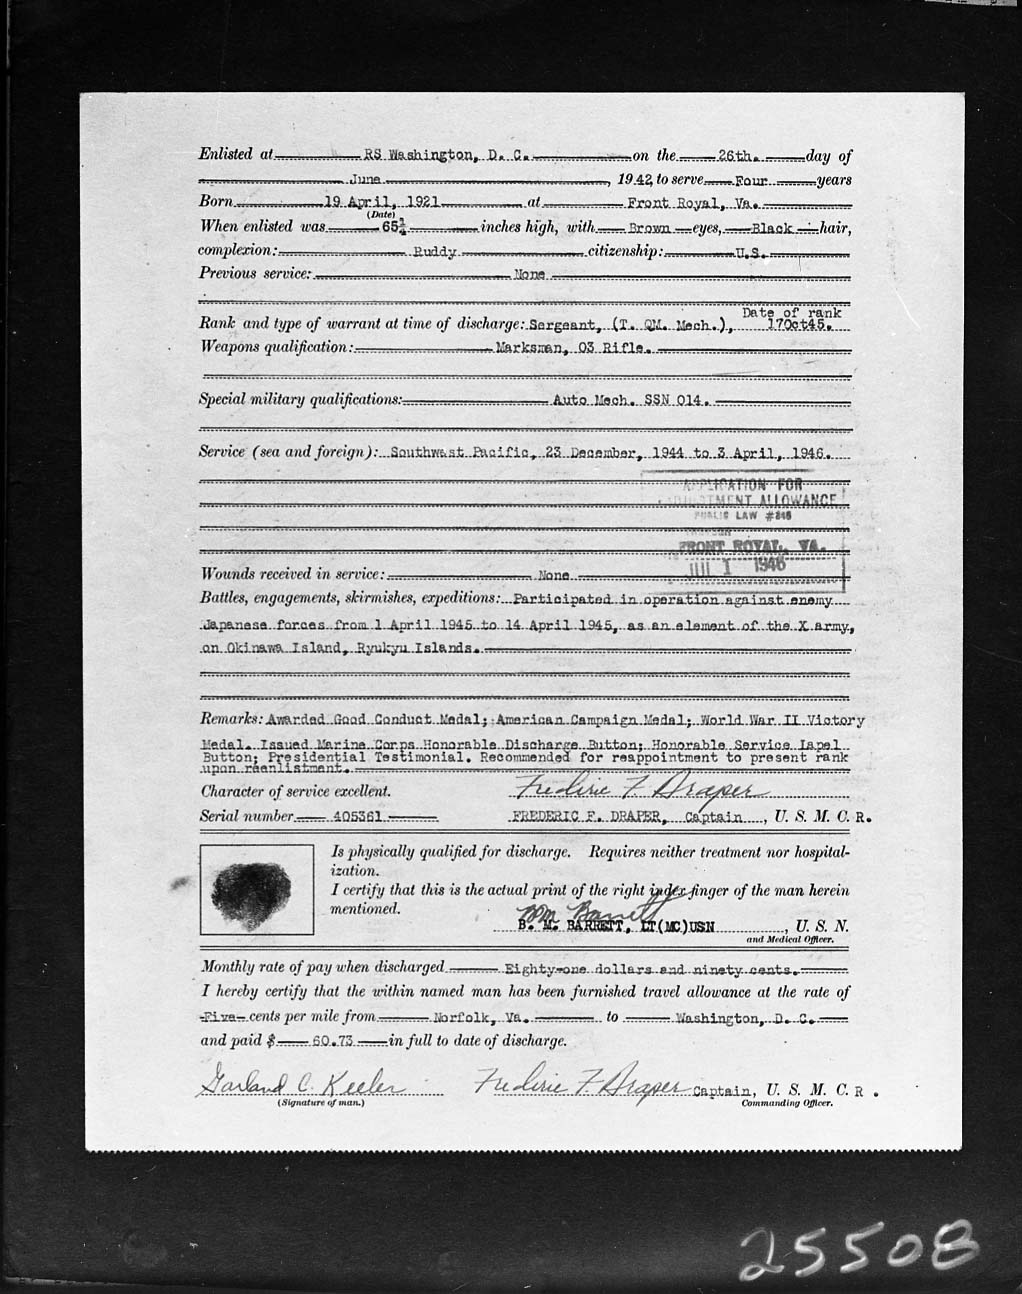 Enlisted at RS Washington, D. C. on the 26th. day of
June, 1942, to serve Four years
Born 19 April, 1921 at Front Royal, Va.
(Date)
When enlisted was 65½ inches high, with Brown eyes, Black hair,
complexion: Ruddy citizenship: U.S.
Previous service: None
Date of rank
Rank and type of warrant at time of discharge: Sergeant, (T. QM. Mech.), 17Oct45.
Weapons qualification: Marksman, 03 Rifle.
Special military qualifications: Auto Mech. SSN 014.
Service (sea and foreign): Southwest Pacific, 23 December, 1944 to 3 April, 1946.
APPLICATION FOR
ADJUSTMENT ALLOWANCE
PUBLIC LAW #346
FRONT ROYAL, VA.
JUL 1 1946
Wounds received in service: None
Battles, engagements, skirmishes, expeditions: Participated in operation against enemy
Japanese forces from 1 April 1945 to 14 April 1945, as an element of the X army,
on Okinawa Island, Ryukyu Islands.
Remarks: Awarded Good Conduct Medal; American Campaign Medal; World War II Victory
Medal. Issued Marine Corps Honorable Discharge Button; Honorable Service Lapel
Button; Presidential Testimonial. Recommended for reappointment to present rank
upon reenlistment.
Character of service excellent. Frederic F. Draper
Serial number 405361 FREDERIC F. DRAPER, Captain, U. S. M. C. R.
Is physically qualified for discharge. Requires neither treatment nor hospital-
ization.
I certify that this is the actual print of the right index finger of the man herein
mentioned. BM Barrett
B. M. BARRETT, LT(MC)USN, U. S. N.
and Medical Officer.
Monthly rate of pay when discharged Eighty-one dollars and ninety cents.
I hereby certify that the within named man has been furnished travel allowance at the rate of
Five cents per mile from Norfolk, Va. to Washington, D. C.
and paid $ 60.73 in full to date of discharge.
Garland C. Keeler Frederic F. Draper Captain, U. S. M. C. R.
(Signature of man.) Commanding Officer.
25508